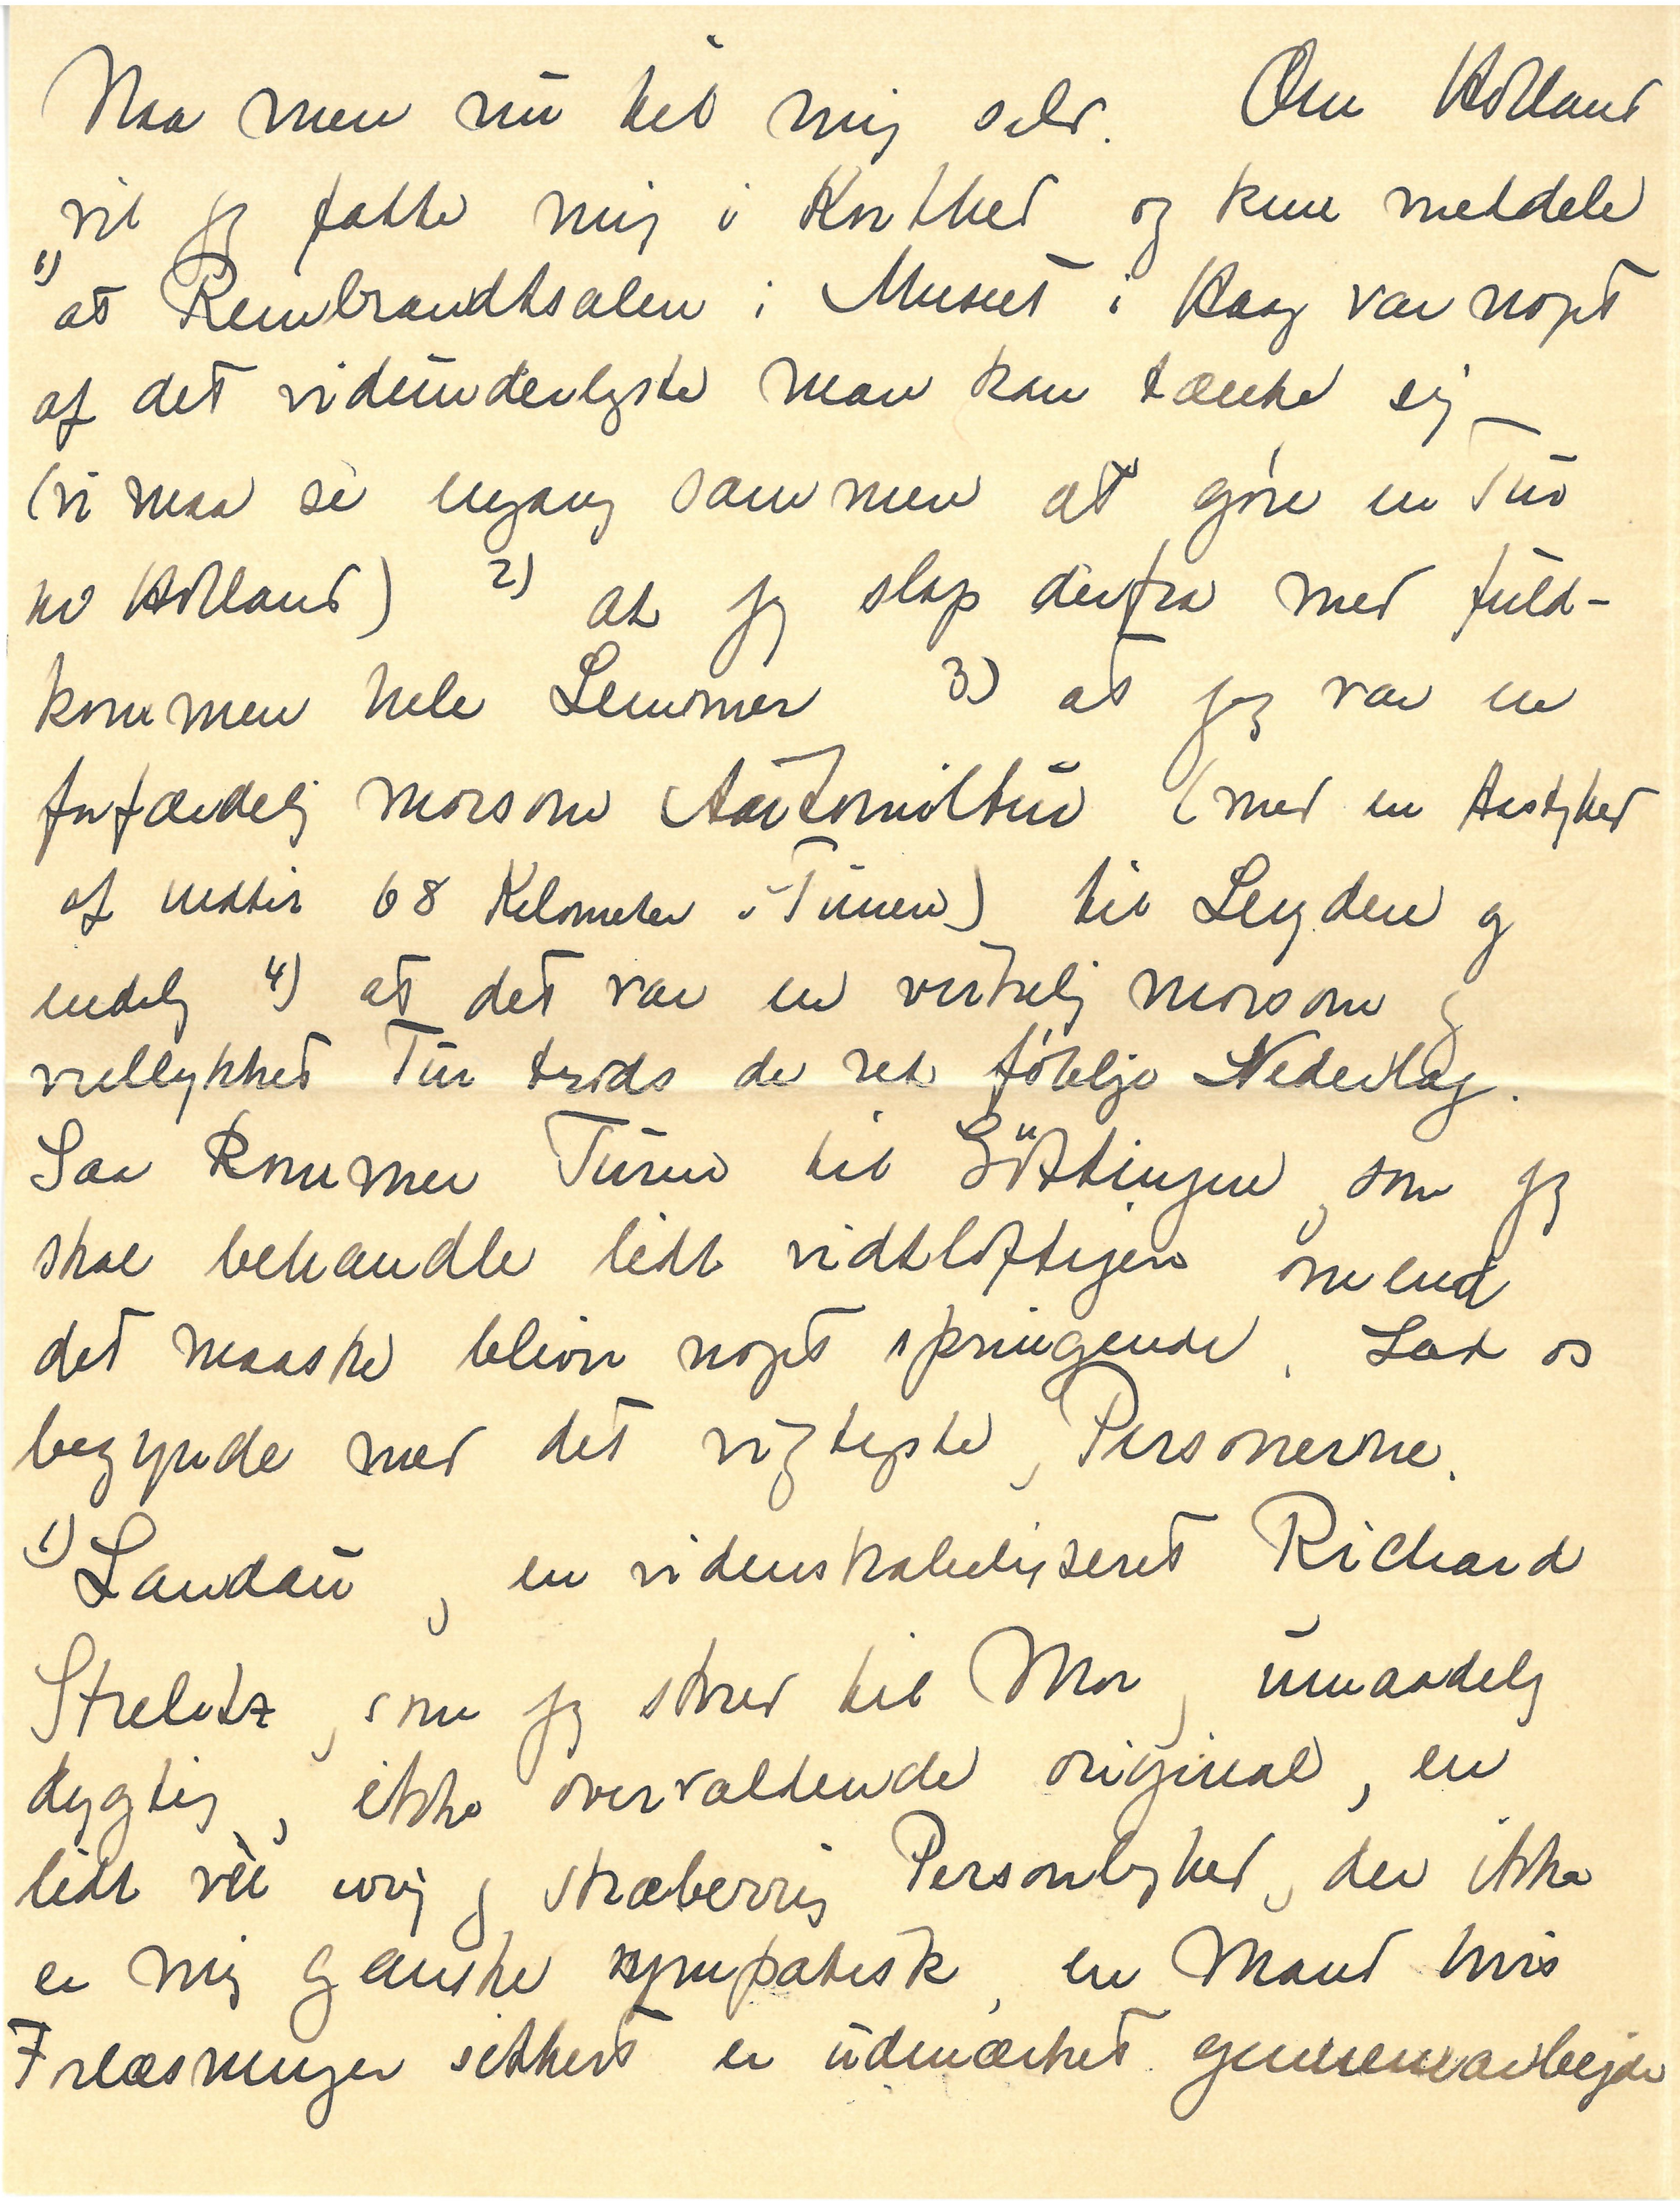 Naa men nu til mig selv. Om Holland
vil jeg fatte mig i Korthed og kun meddele
1) at Rembrandtsalen i Museet i Haag var noget
af det vidunderligste man kan tænke sig
(vi maa se engang sammen at gøre en Tur
til Holland) 2) at jeg slap derfra med fuld-
kommen hele Lemmer 3) at jeg var en
forfærdelig morsom Automobiltur (med en Hastighed
af indtil 68 Kilometer i Timen) til Leyden og
endelig 4) at det var en virkelig morsom og
vellykket Tur trods de ret følelige Nederlag.
Saa kommer Turen til Göttingen, som jeg
skal behandle lidt vidtløftigere omend
det maaske bliver noget springende. Lad os
begynde med det vigtigste, Personerne.
1) Landau, en videnskabeligseret Richard
Strelitz, som jeg skrev til Mor, umaadelig
dygtig, ikke overvældende original, en
lidt vel ivrig og stræberrig Personlighed, der ikke
er mig ganske sympatisk, en Mand hvis
Forlæsninger sikkert er udmærket gennemarbejde